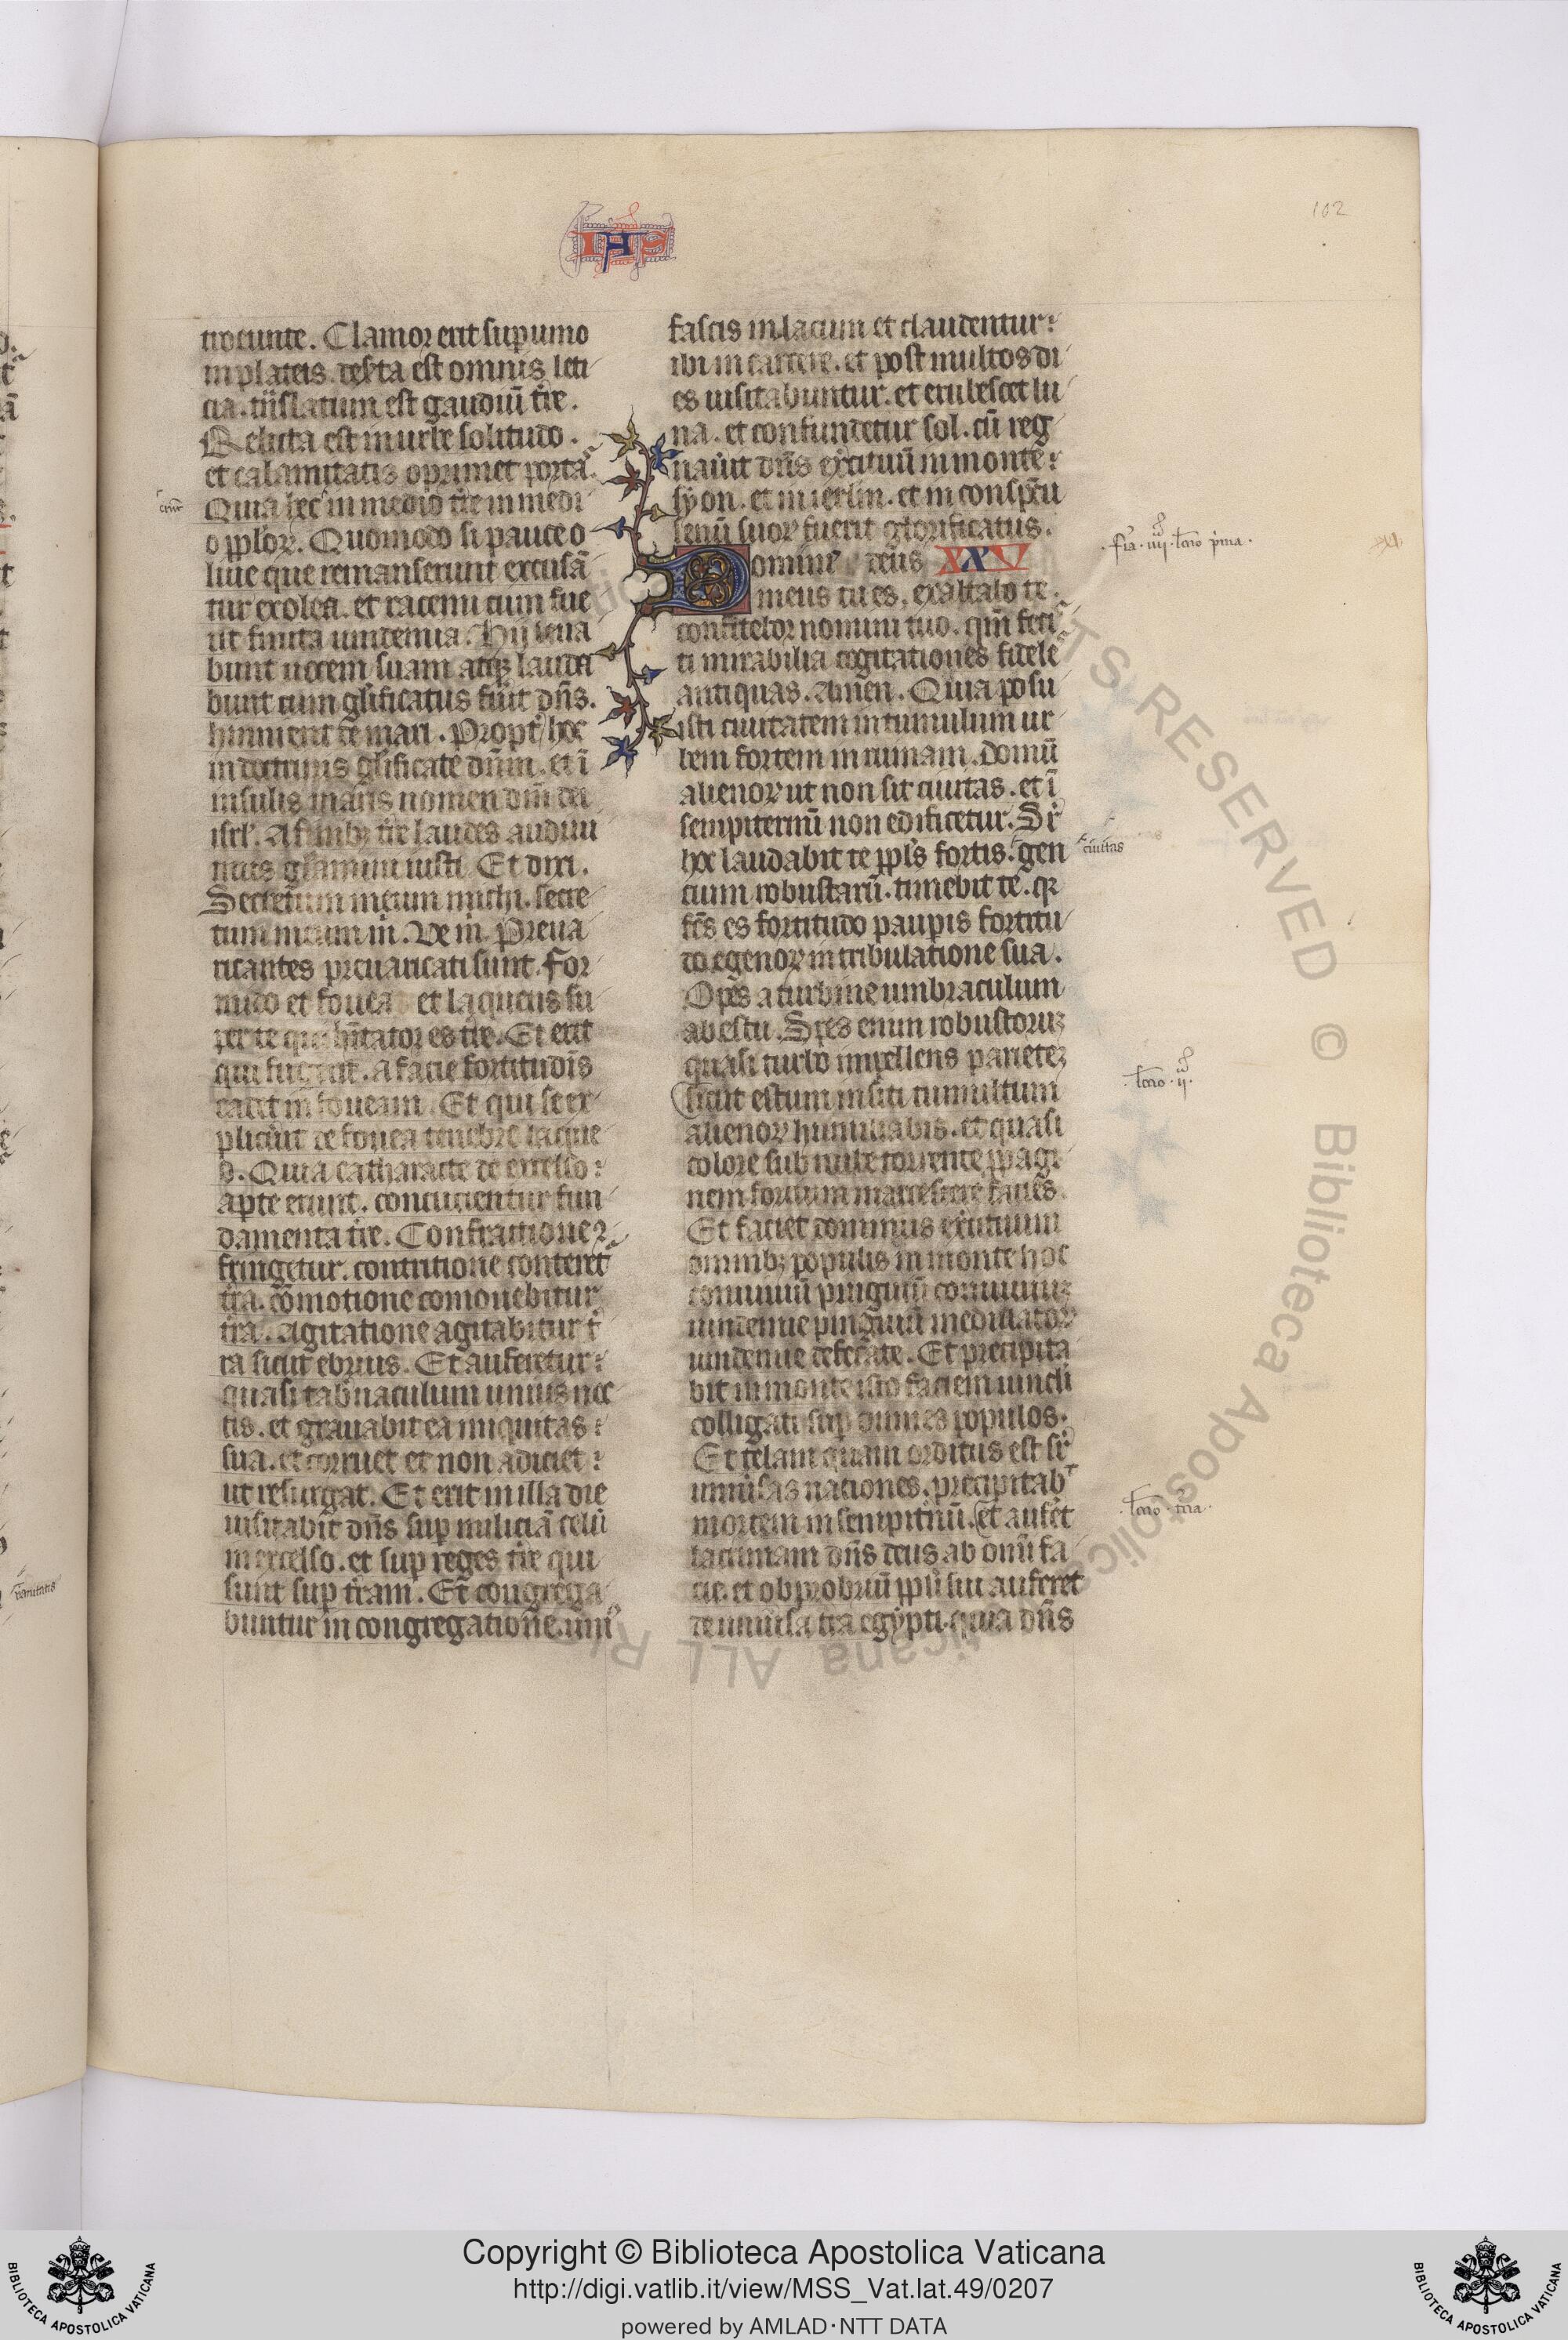 IHS
102
troeunte. Clamor erit sup uino
in plateis. desrta est omnis leti
cia. tñslatum est gaudiũ tr̃e.
Relicta est in urbe solitudo.
et calamitatis oprimet portã.
Quia hec in medio tr̃e in medi
o pplor. Quomodo si pauce o
liue que remanserunt excusã
tur ex olea. et racemi cum fue
rit finita uindemia. Hij leua
bunt uocem suam atqz lauda
bunt cum glificatus fuit dñs.
hinnient de mari. Propt hoc
in doctrinis glificate dñm. et ĩ
insulis maris nomen dñi dei
isrl. A finibz tr̃e laudes audiui
mus gl̃iam iusti. Et dixi.
Secretum meum michi. secre
tum meum m. Ve m. Preua
ricantes preuaricati sunt. For
mido et fouea et laqueus su
per te qui hñtator es tr̃e. Et erit
qui fugerit. a facie fortitudĩs
cadet in foueam. Et qui se ex
plicuit de fouea tenebit laque
o. Quia catharacte de excelso:
apte erunt. concucientur fun
damenta tr̃e. Confractione 9
fringetur. contritione conteret
tr̃a. cõmotione comouebitur
tr̃a. Agitatione agitabitur t̃
ra sicut ebrius. Et auferetur:
quasi tabñaculum unius noc
tis. et grauabit eã iniquitas:
sua. et corruet et non adiciet:
ut resurgat. Et erit in illa die
uisitabit dñs sup miliciã celi
in excelso. et sup reges tr̃e qui
sunt sup tr̃am. Et congrega
buntur in congregatione uni9
fascis in lacum et claudentur:
ibi in carcere. et post multos di
es uisitabuntur. et erubescet lu
na. et confundetur sol. cũ reg
nauit dñs exercituũ in monte:
syon. et in ierlm. et in conspcu
senũ suor fuerit glorificatus.
Domine deus XXV
meus tu es. exaltabo te.
confitebor nomini tuo. qm̃ feci
ti mirabilia cogitationes fidele
antiquas. Amen. Quia posu
isti ciuitatem in tumulum ur
bem fortem in ruinam. domũ
alienor ut non sit ciuitas. et ĩ
sempiternũ non edificetur. Sr̃
hoc laudabit te ppls fortis. gen
cium robustarũ. timebit te. qr
fc̃s es fortitudo paupis fortitu
do egenor in tribulatione sua.
Spes a turbine umbraculum
ab estu. Spes enim robustorum
quasi turbo impellens parietez
sicut estum in siti tumultum
alienor humiliabis. et quasi
colore sub nube torrente ppagi
nem fortium marcescere facies.
Et faciet dominus exercituum
omnibz populis in monte hoc
conuiuiũ pinguiũ conuiuiuz
uindemie pinguiũ medullator
uindemie defecate. Et precipita
bit in monte isto faciem uincli
colligati sup omnes populos.
Et telam quam orditus est sr̃
uniũsas nationes. precipitab̃
mortem in sempitnũ. et aufet
lacrimam dñs deus ab omi fa
cie. et obprobriũ ppli sui auferet
de uniũsa tr̃a egypti. quia dñs
ciuitas
fr̃ia. iiij. lctio prima.
lctio. ij.
lctio. tcia.
Copyright © Biblioteca Apostolica Vaticana
http://digi.vatlib.it/view/MSS_Vat.lat.49/0207
powered by AMLAD·NTT DATA
BIBLIOTECA APOSTOLICA VATICANA
BIBLIOTECA APOSTOLICA VATICANA